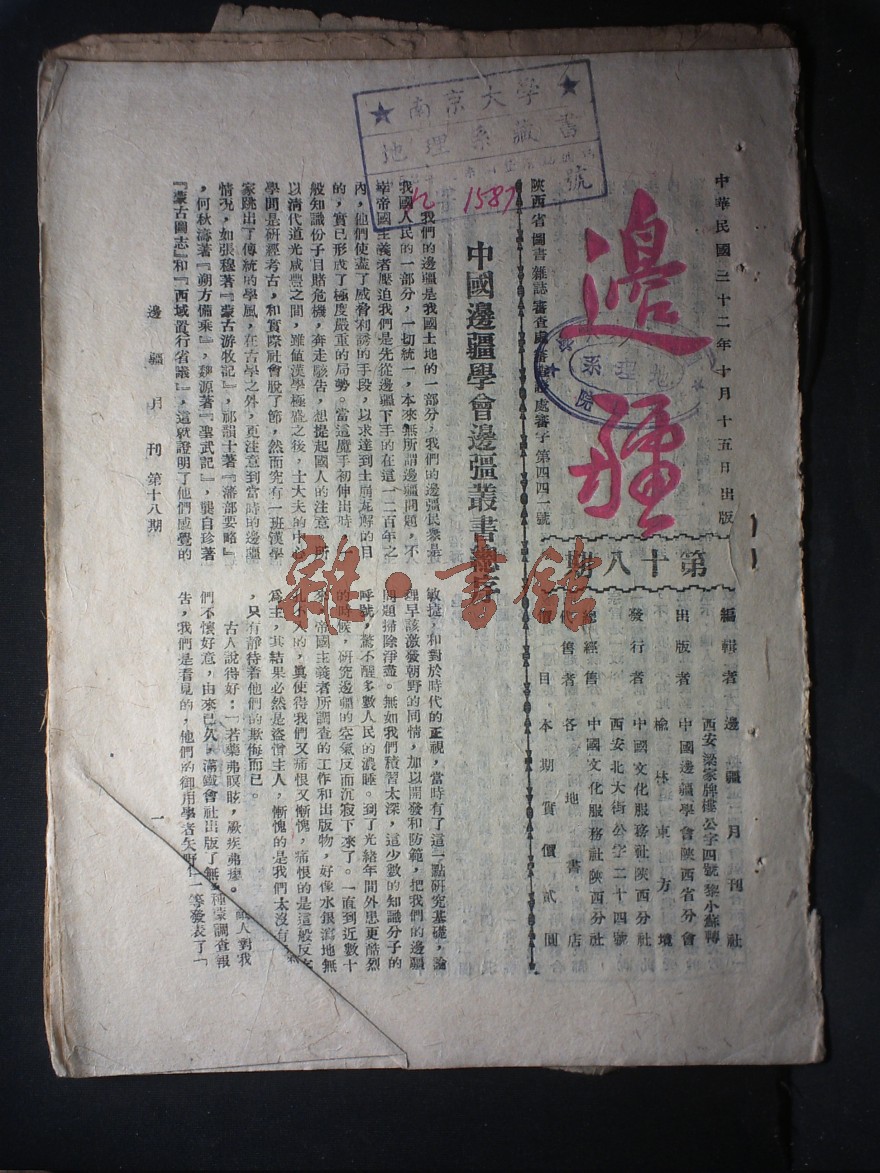 中華民國三十二年十月十五日出版
邊疆
第十八期
編輯者 邊疆月刊社
西安梁家牌樓公字四號黎小蘇轉
出版者 中國邊疆學會陝西省分會
榆林東方壇
發行者 中國文化服務社陝西分社
西安北大街公字二十四號
總經售 中國文化服務社陝西分社
代售者 各地書店
價目 本期實價貳圓
陝西省圖書雜誌審查處審查證處審字第四四一號
南京大學
地理系藏書
號
1587
地理系
院
中國邊疆學會邊疆叢書總序
我們的邊疆是我國土地的一部分,我們的邊疆民衆是
我國人民的一部分,一切統一,本來無所謂邊疆問題,不
幸帝國主義者壓迫我們是先從邊疆下手的在這一二百年之
內,他們使盡了威脅利誘的手段,以求達到土崩瓦解的目
的,實已形成了極度嚴重的局勢。當這魔手初伸出時,一
般知識份子目賭危機,奔走駭告,想提起國人的注意,所
以清代道光咸豐之間,雖值漢學極盛之後,士大夫的中心
學問是研經考古,和實際社會脫了節,然而究有一班漢學
家跳出了傳統的學風,在古學之外,更注意到當時的邊疆
情況,如張穆著『蒙古游牧記』,祁韻士著『藩部要略』
,何秋濤著『朔方備乘』,魏源著『聖武記』,龔自珍著
『蒙古圖志』和『西域置行省議』,這就證明了他們感覺的
敏捷,和對於時代的正視,當時有了這一點研究基礎,論
理早該激發朝野的同情,加以開發和防範,把我們的邊疆
問題掃除淨盡。無如我們積習太深,這少數的知識分子的
呼號,驚不醒多數人民的濃睡。到了光緒年間外患更酷烈
的時候,研究邊疆的空氣反而沉寂下來了。一直到近數十
年,帝國主義者所調查的工作和出版物,好像水銀瀉地無
孔不入的,眞使得我們又痛恨又慚愧,痛恨的是這般反客
爲主,其結果必然是盜憎主人,慚愧的是我們太沒有
,只有靜待着他們的欺侮而已。
古人說得好:「若藥弗瞑眩,厥疾弗瘳。」敵人對我
們不懷好意,由來已久,滿鐵會社出版了無數種蒙調查報
告,我們是看見的,他們的御用學者矢野仁一等發表了「
邊疆月刊 第十八期 一
雜·書館